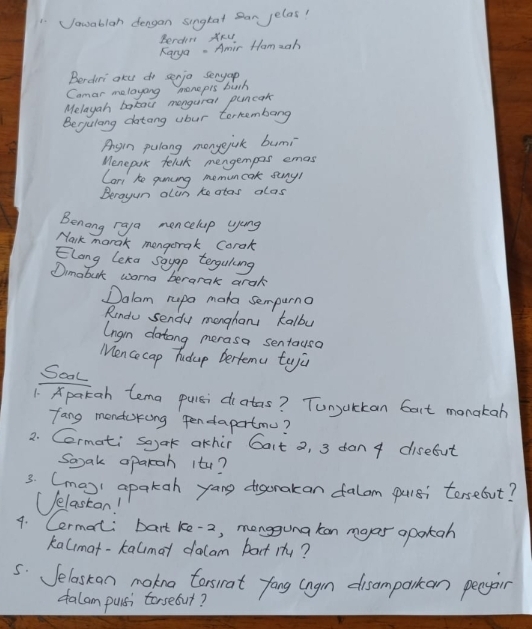 Jawablah dengan singkat dan jelas!
Berdiri Aku
Karya = Amir Hamzah
Berdiri aku di senja senyap
Camar melayang menepis buih
Melayah bakau mengurai puncak
Berjulang datang ubur terkembang
Angin pulang menyejuk bumi
Menepuk teluk mengempas emas
Lari ke gunung memuncak sunyi
Berayun alun ke atas alas
Benang raja mencelup ujung
Naik marak mengorak corak
Elang leka sayap tergulung
Dimabuk warna berarak arak
Dalam rupa maha sempurna
Rindu sendu mengharu kalbu
Ingin datang merasa sentausa
Mencecap hidup bertemu tuju
Soal
1. Apakah tema puisi di atas? Tunjukkan bait manakah
yang mendukung pendapatmu?
2. Cermati sajak akhir bait 2, 3 dan 4 disebut
sajak apakah itu?
3. Imaji apakah yang digunakan dalam puisi tersebut?
Jelaskan!
4. Cermati bait ke-2, menggunakan majas apakah
kalimat-kalimat dalam bait itu?
5. Jelaskan makna tersirat yang ingin disampaikan penyair
dalam puisi tersebut?